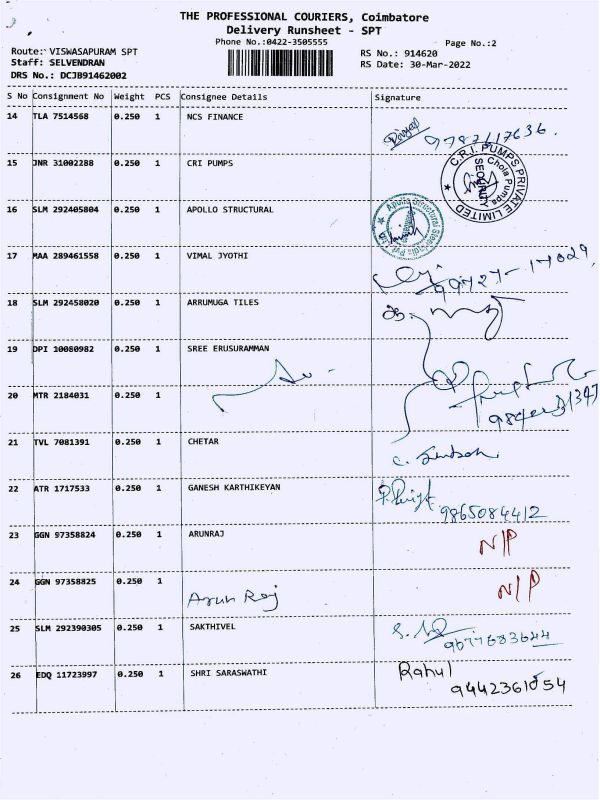 THE PROFESSIONAL COURIERS, Coimbatore
Delivery Runsheet - SPT
Phone No.:0422-3505555
Page No.:2
Route: VISWASAPURAM SPT
RS No.: 914620
Staff: SELVENDRAN
RS Date: 30-Mar-2022
DRS No.: DCJB91462002
S No Consignment No Weight PCS Consignee Details Signature
14 TLA 7514568 0.250 1 NCS FINANCE
9787117636.
15 JNR 31002288 0.250 1 CRI PUMPS
C.R.I. PUMPS PRIVATE LIMITED
Chola Pumps
SECURITY
16 SLM 292405804 0.250 1 APOLLO STRUCTURAL
Apollo Structural
17 MAA 289461558 0.250 1 VIMAL JYOTHI
18 SLM 292458020 0.250 1 ARRUMUGA TILES
19 DPI 10080982 0.250 1 SREE ERUSURAMMAN
20 MTR 2184031 0.250 1
21 TVL 7081391 0.250 1 CHETAR
22 ATR 1717533 0.250 1 GANESH KARTHIKEYAN
9865084412
23 GGN 97358824 0.250 1 ARUNRAJ
N/P
24 GGN 97358825 0.250 1
Arun Raj N/P
25 SLM 292390305 0.250 1 SAKTHIVEL
9677683644
26 EDQ 11723997 0.250 1 SHRI SARASWATHI Rahul
9442361054